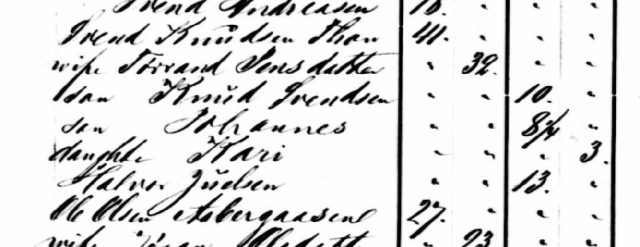 Svend Andreasen 18. " " "
Svend Knudsen Thon 41. " " "
wife Torrand Jensdatter " 32. " "
son Knud Svendsen " " 10. "
son Johannes " " 8 1/4 "
daughte Kari " " " 3.
Halvor Juelsen " " 13. "
Ole Olsen Asbergaasene 27. " " "
wife Olsdatt " 23 " "